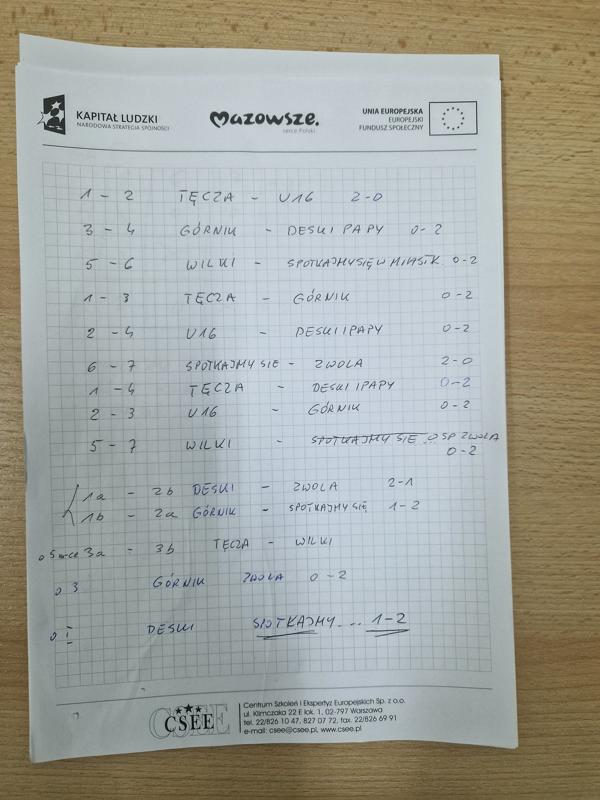 KAPITAŁ LUDZKI
NARODOWA STRATEGIA SPÓJNOŚCI
Mazowsze.
serce Polski
UNIA EUROPEJSKA
EUROPEJSKI
FUNDUSZ SPOŁECZNY
1 - 2 TĘCZA - U16 2-0
3 - 4 GÓRNIK - DESKI I PAPY 0-2
5 - 6 WILKI - SPOTKAJMY SIĘ W MIASTK 0-2
1 - 3 TĘCZA - GÓRNIK 0-2
2 - 4 U16 - DESKI I PAPY 0-2
6 - 7 SPOTKAJMY SIE - ZWOLA 2-0
1 - 4 TĘCZA - DESKI I PAPY 0-2
2 - 3 U16 - GÓRNIK 0-2
5 - 7 WILKI - SPOTKAJMY SIE OSP ZWOLA
0-2
1a - 2b DESKI - ZWOLA 2-1
1b - 2a GÓRNIK - SPOTKAJMY SIĘ 1-2
o 5 mce 3a - 3b TĘCZA - WILKI
o 3 GÓRNIK ZWOLA 0-2
o I DESKI SPOTKAJMY... 1-2
CSEE
Centrum Szkoleń i Ekspertyz Europejskich Sp. z o.o.
ul. Klimczaka 22 E lok. 1, 02-797 Warszawa
tel. 22/826 10 47, 827 07 72, fax. 22/826 69 91
e-mail: csee@csee.pl, www.csee.pl